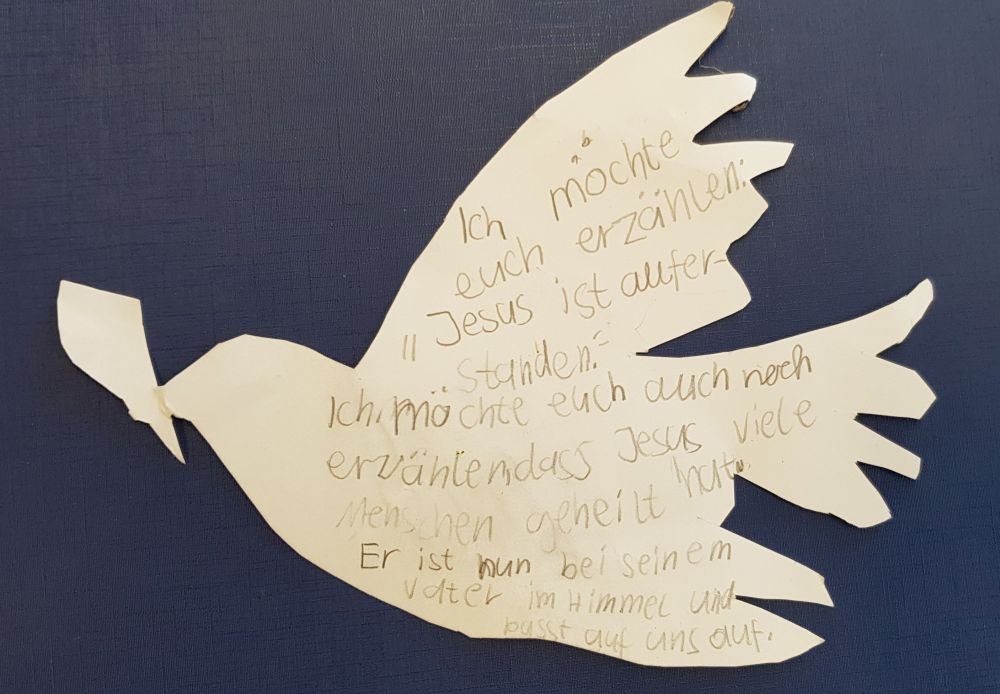 Ich möchte
euch erzählen:
"Jesus ist aufer-
standen."
Ich möchte euch auch noch
erzählen dass Jesus viele
Menschen geheilt hat.
Er ist nun bei seinem
Vater im Himmel und
passt auf uns auf.